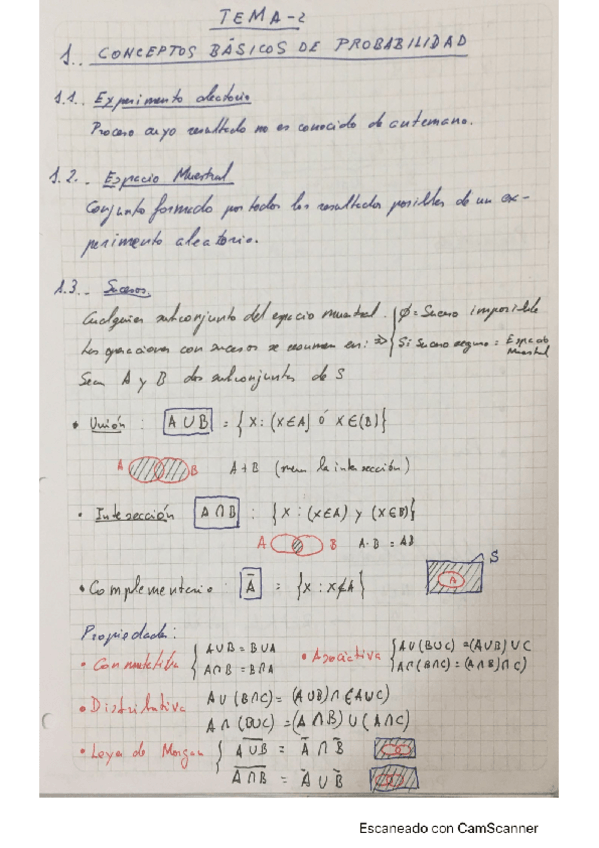 TEMA-2
1.. CONCEPTOS BÁSICOS DE PROBABILIDAD
1.1.. Experimento aleatorio
Proceso cuyo resultado no es conocido de antemano.
1.2.- Espacio Muestral
Conjunto formado por todos los resultados posibles de un ex-
perimento aleatorio.
1.3.- Sucesos.
Cualquier subconjunto del espacio muestral. { Ø = Suceso imposible
Las operaciones con sucesos se resumen en: => S: Suceso seguro = Espacio Muestral
Sean A y B dos subconjuntos de S
• Unión : A ∪ B = { X : (X ∈ A) ó X ∈ (B) }
A B A + B (menos la intersección)
• Intersección A ∩ B : { X : (X ∈ A) y (X ∈ B) }
A B A·B = AB
S
• Complementario : Ā = { X : X ∉ A }
A
Propiedades :
• Conmutativa { A∪B = B∪A • Asociativa { A∪(B∪C) = (A∪B)∪C
A∩B = B∩A A∩(B∩C) = (A∩B)∩C)
• Distributiva A∪(B∩C) = (A∪B)∩(A∪C)
A∩(B∪C) = (A∩B)∪(A∩C)
• Leyes de Morgan { A̅∪̅B̅ = Ā ∩ B̄
A̅∩̅B̅ = Ā ∪ B̄
Escaneado con CamScanner